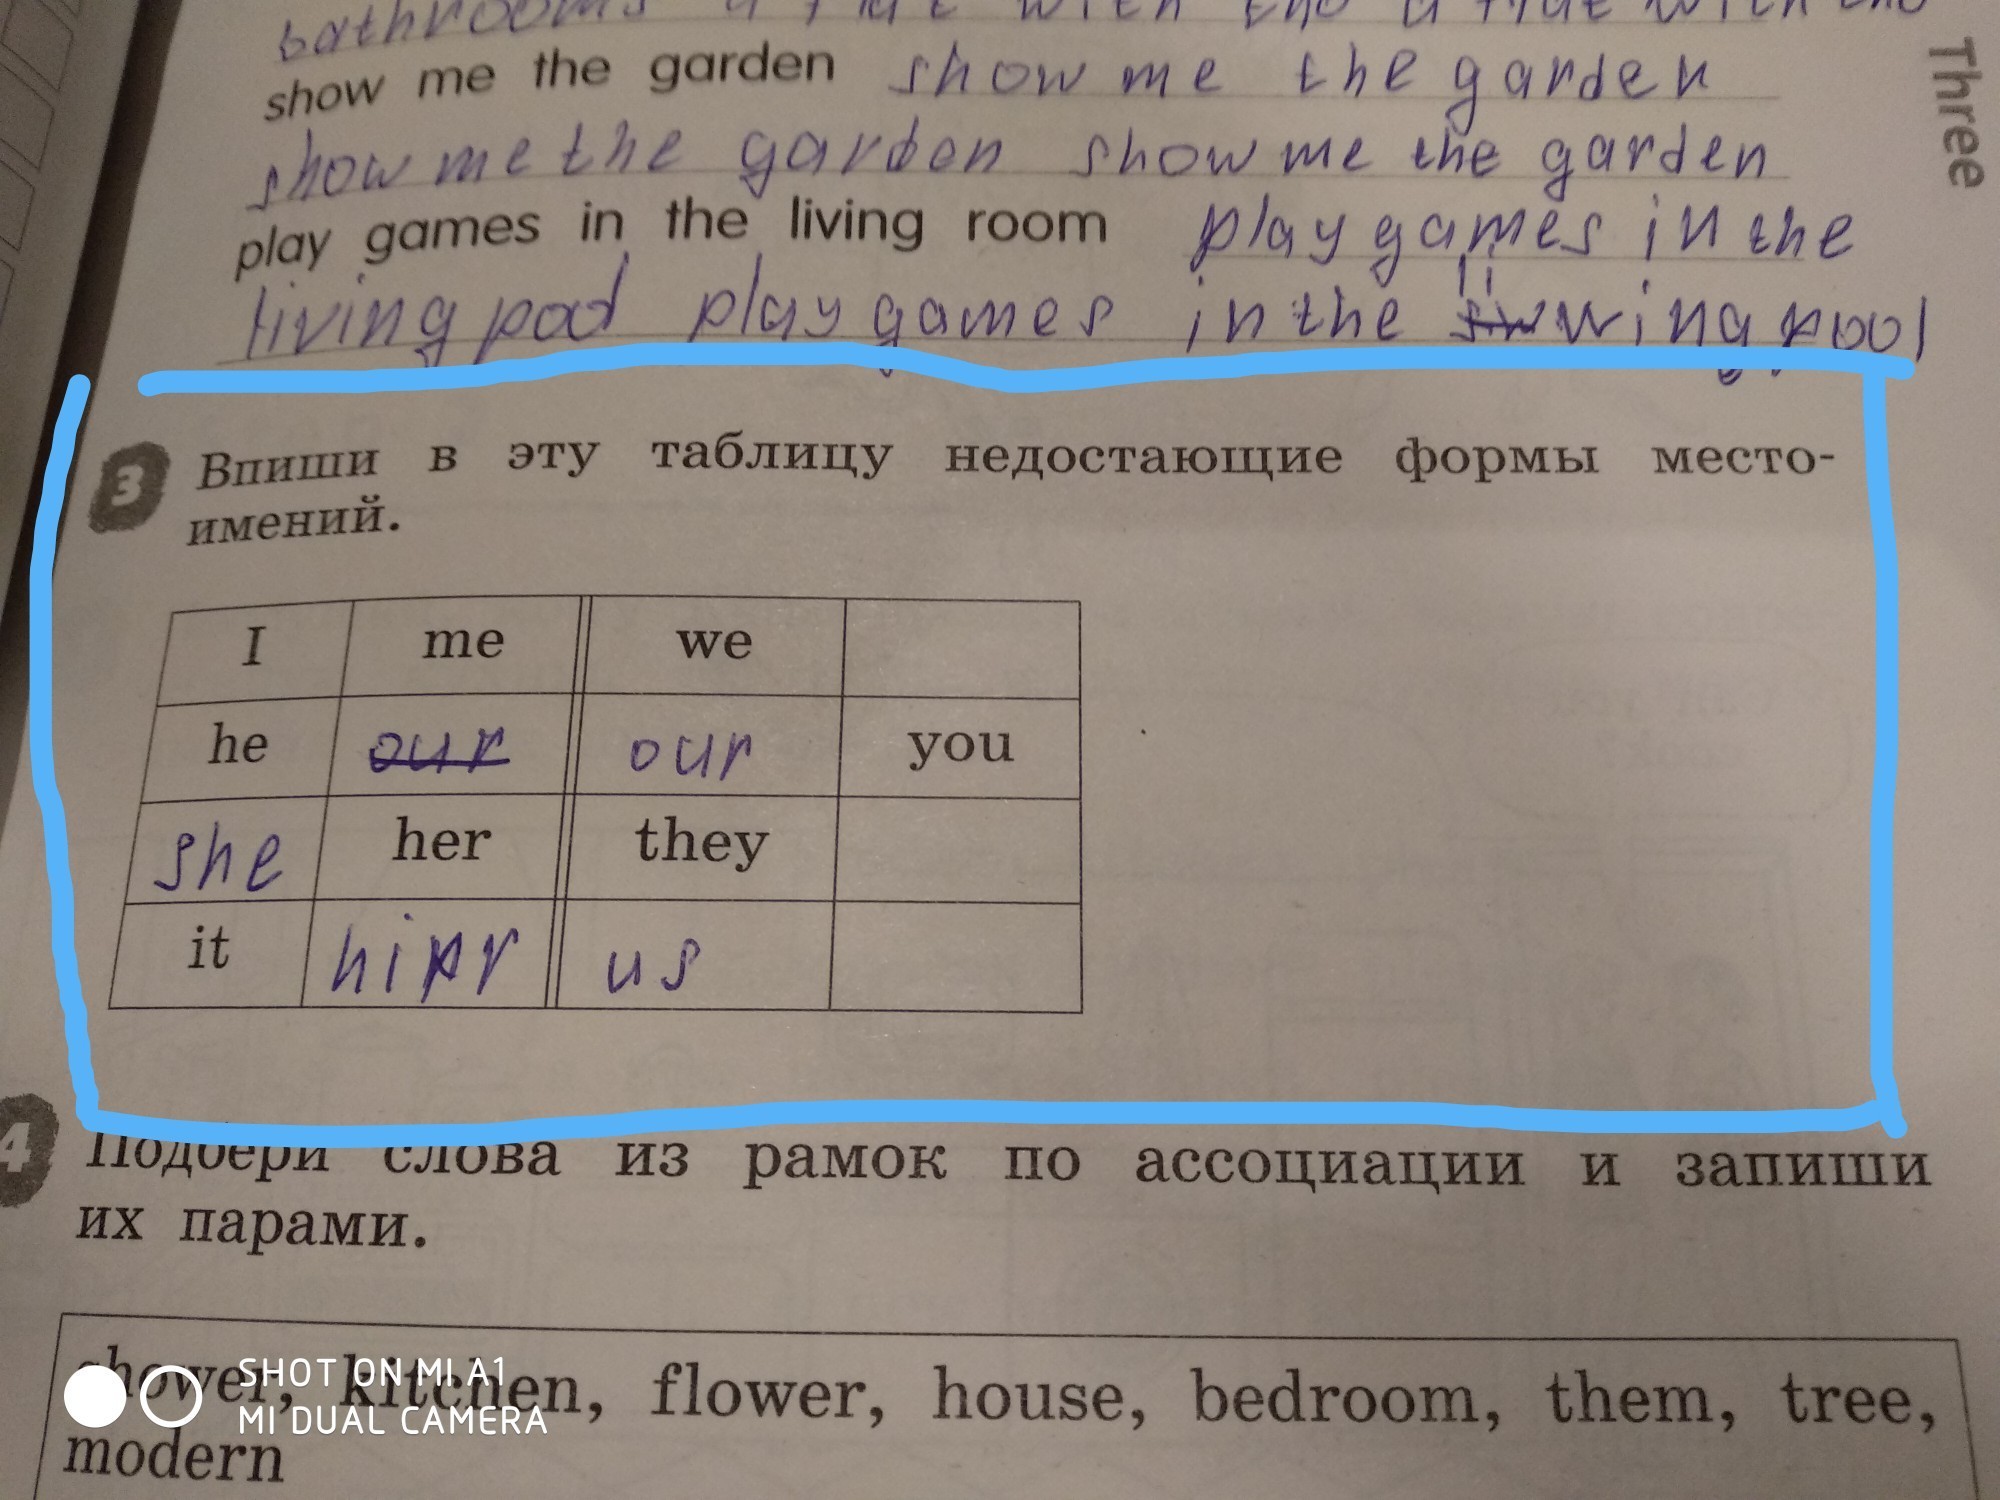 bathrooms a flat with
show me the garden show me the garden
show me the garden show me the garden
play games in the living room play games in the
living pool play games in the living pool
Three
3 Впиши в эту таблицу недостающие формы место-
имений.
I me we
he our our you
she her they
it us
4 Подбери слова из рамок по ассоциации и запиши
их парами.
shower, kitchen, flower, house, bedroom, them, tree,
modern
SHOT ON MI A1
MI DUAL CAMERA